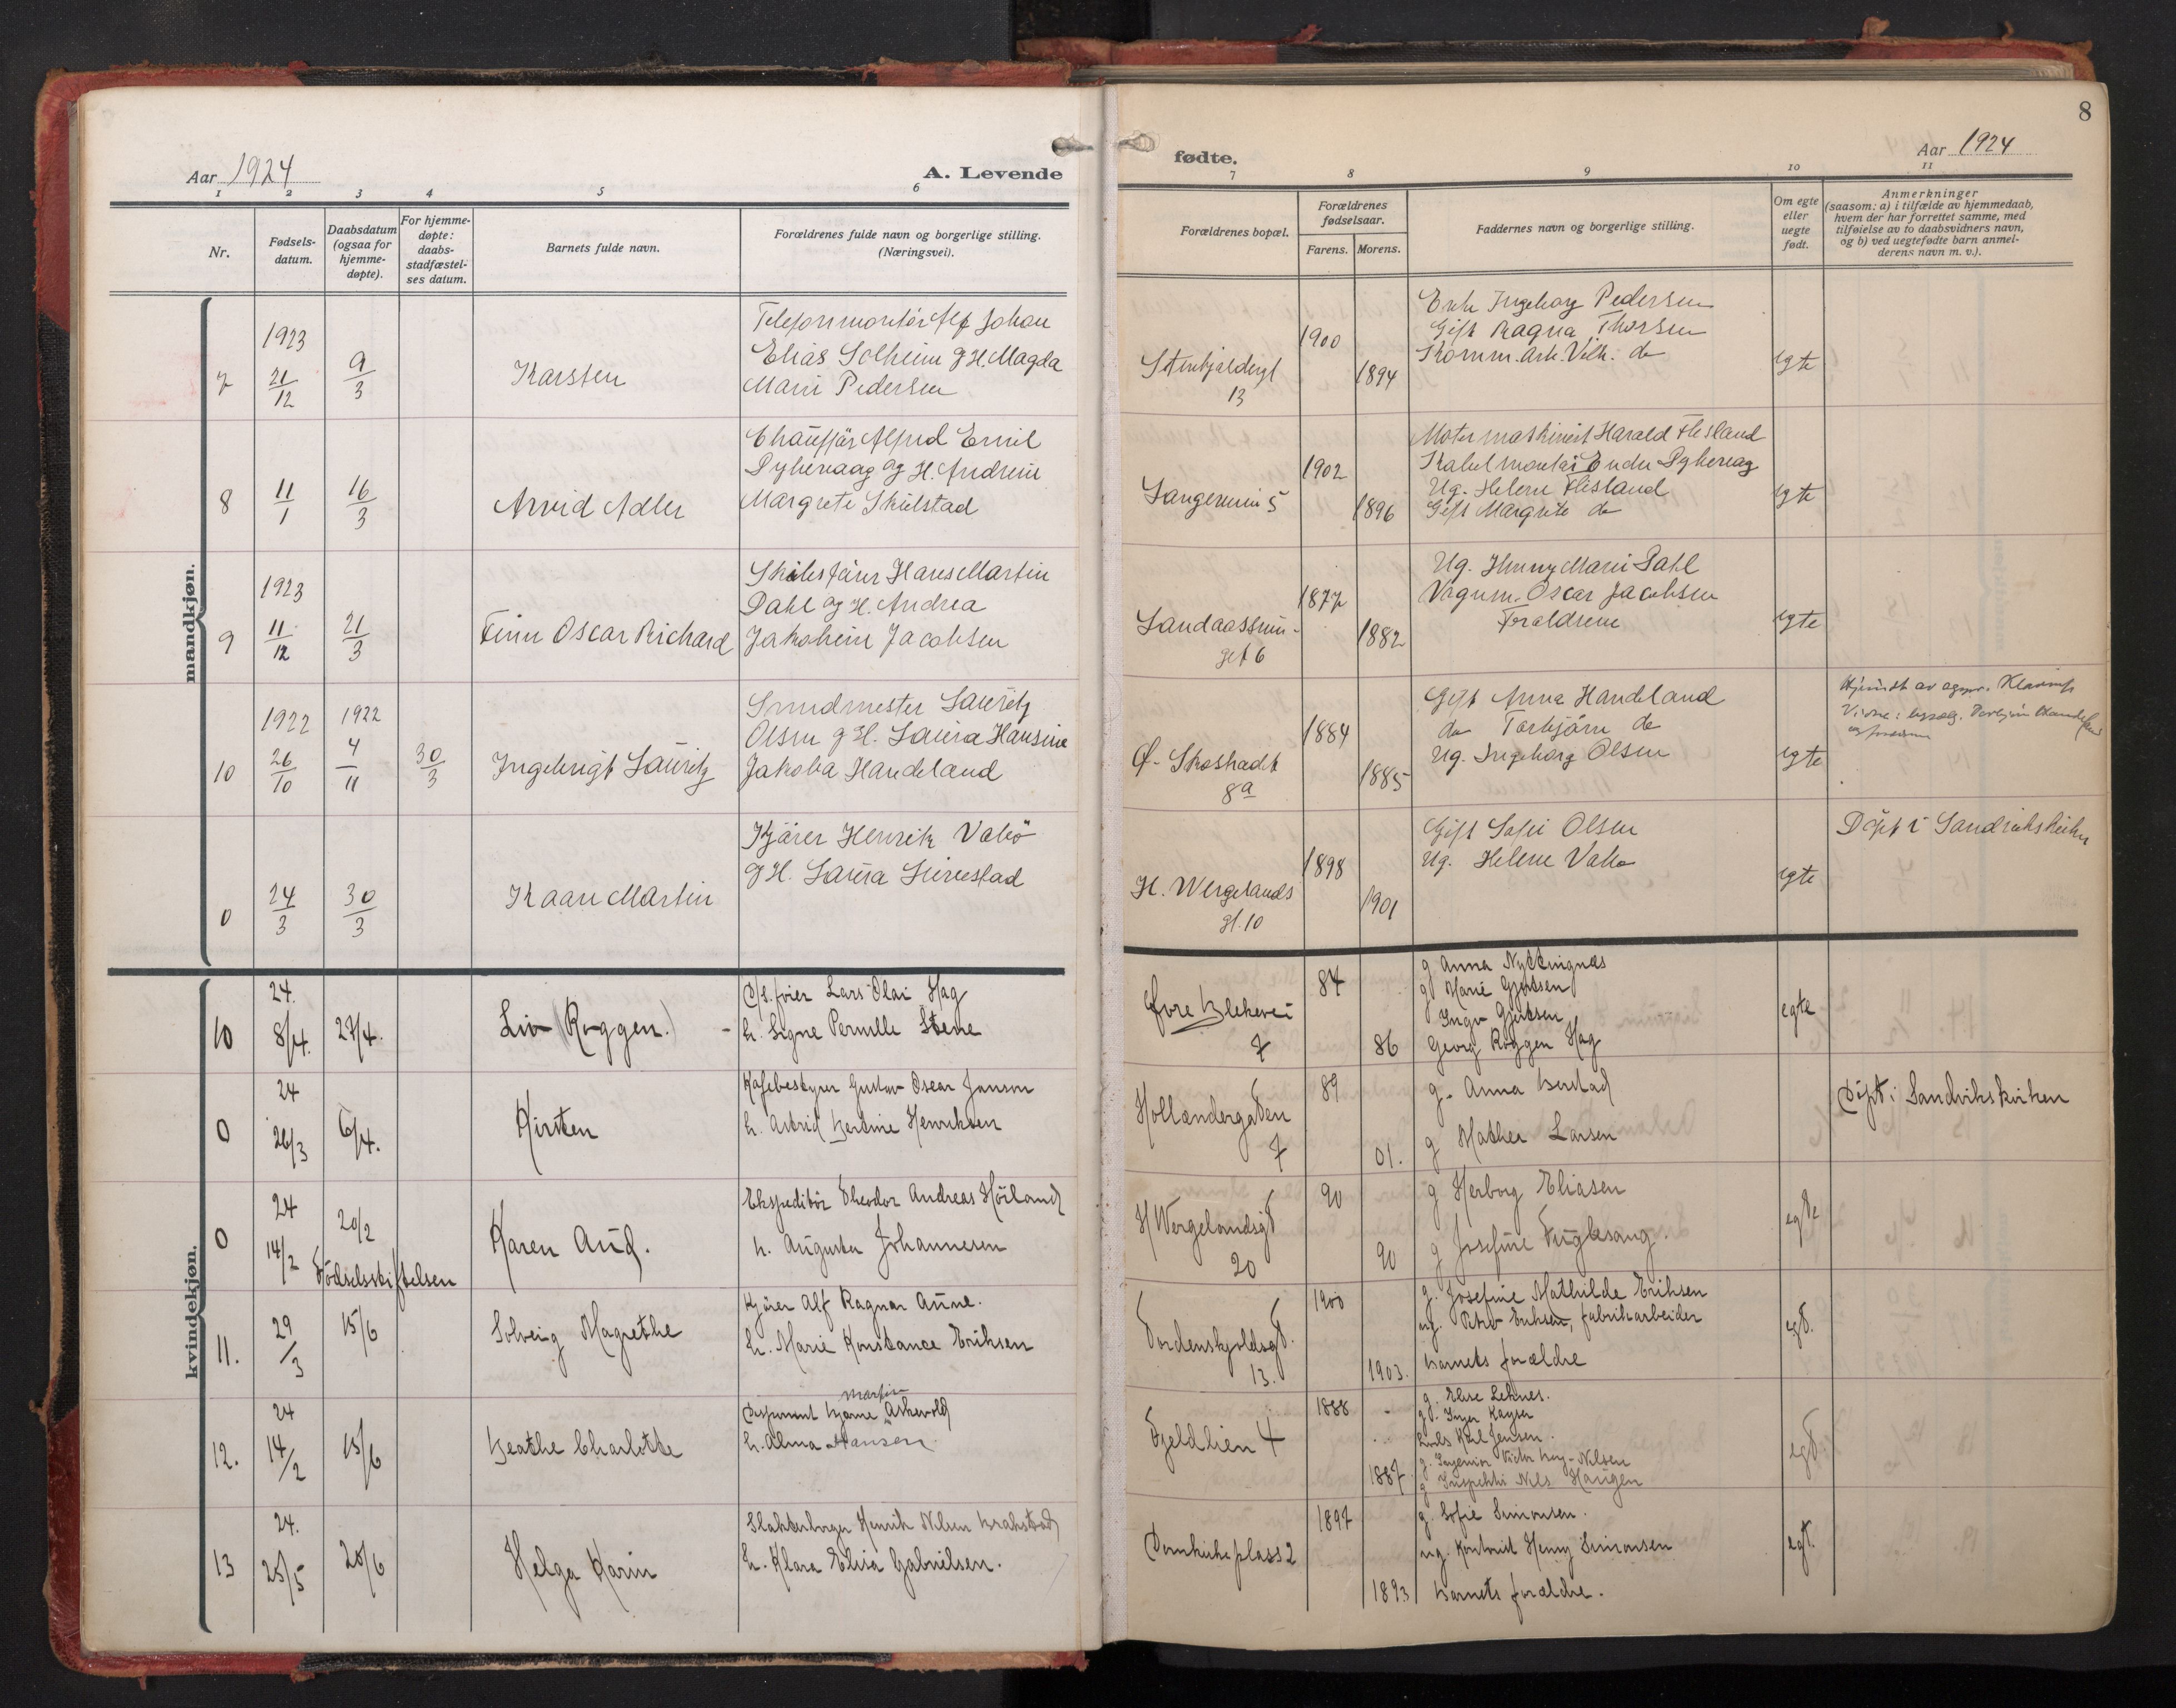 8
Aar 1924
A. Levende
fødte.
Aar 1924
1 2 3 4 5 6 7 8 9 10 11
Nr.
Fødsels-
datum.
Daabsdatum
(ogsaa for
hjemme-
døpte).
For hjemme-
døpte:
daabs-
stadfæstel-
ses datum.
Barnets fulde navn.
Forældrenes fulde navn og borgerlige stilling.
(Næringsvei).
Forældrenes bopæl.
Forældrenes
fødselsaar.
Farens. Morens.
Faddernes navn og borgerlige stilling.
Om egte
eller
uegte
født.
Anmerkninger
(saasom: a) i tilfælde av hjemmedaab,
hvem der har forrettet samme, med
tilføielse av to daabsvidners navn,
og b) ved uegtefødte barn anmel-
derens navn m. v.).
mandkjøn.
7
1923
21/12
9/3
Karsten
Telefonmontør Alf Johan
Elias Solheim g H. Magda
Marie Pedersen
13
1900
1894
Enke Ingeborg Pedersen
Gift Ragna Thorsen
egte
8
11/1
16/3
Arvid Adler
Chauffør Alfred Emil
Dyhevaag og H. Andrine
Margrete Skulstad
5
1902
1896
Motormaskinist Harald Flesland
Ug. Helene Flesland
Gift Margrete do
egte
9
1923
11/12
21/3
Finn Oscar Richard
Skibsfører Hans Martin
Dahl og H. Andrea
Jakobsine Jacobsen
6
1877
1882
Ug. Henny Marie Dahl
Vognm. Oscar Jacobsen
Forældrene
egte
10
1922
26/10
1922
4/11
30/3
Ingebrigt Lauritz
Smedmester Lauritz
Olsen g H. Laura Hansine
Jakoba Handeland
Ø. Skostradet
8a
1884
1885
Gift Anna Handeland
do Torbjørn do
Ug. Ingeborg Olsen
egte
0
24/3
30/3
Kaare Martin
Kjører Henrik Vabø
g H. Laura
H. Wergelands
gt. 10
1898
1901
Gift Sofie Olsen
Ug. Helene Vabø
egte
Døpt i Sandvikskirken
kvindekjøn.
10
24.
8/4.
27/4.
Liv (Roggen.)
Lars Olai Hag
h. Signe Pernille Stene
Øvre Blekevei
7
84
86
g Anna Nyttingnes
g Marie Gjertsen
Ingv Gjertsen
Georg Roggen Hag
egte
0
24
26/3
6/4.
Kirsten
Kafebestyrer Gustav Oscar Jonson
h. Astrid Bertine Henriksen
Hollændergaden
7
89
01.
g. Anna Berstad
g Mathea Larsen
Døpt i Sandvikskirken
0
24
14/2
20/2
Fødselsstiftelsen
Karen Aud.
Ekspeditør Theodor Andreas Höiland
h. Augusta Johannesen
H Wergelandsgt
20
90
90
g Herborg Eliasen
g Josefine Fuglesang.
egte
11.
29/3
15/6
Solveig Magrethe
Kjører Alf Ragnar Aune.
h. Marie Konstance Eriksen
Tordenskjoldsgt.
13.
1900
1903.
g. Josefine Mathilde Eriksen
ug. Peter Eriksen, fabrikarbeider
barnets forældre
egt.
12.
24
14/2
15/6
Beathe Charlotte
Martin
Disponent Bjarne Askevold
h. Alma Hansen
Fjeldlien 4
1888
1887
g. Elise Lehnes.
g. Inger Kayser
Karl Jensen.
g. Ingeniør Victor Nilsen
g Inspektør Nils Haugen
egt.
13
24.
25/5
28/6
Helga Karin
Henrik Nilsen Krakstad
h. Klara Elisa Gabrielsen.
Domkirkeplass 2
1897
1893
g. Sofie Simonsen.
ug. Kontorist Henry Simonsen
barnets forældre.
egt.